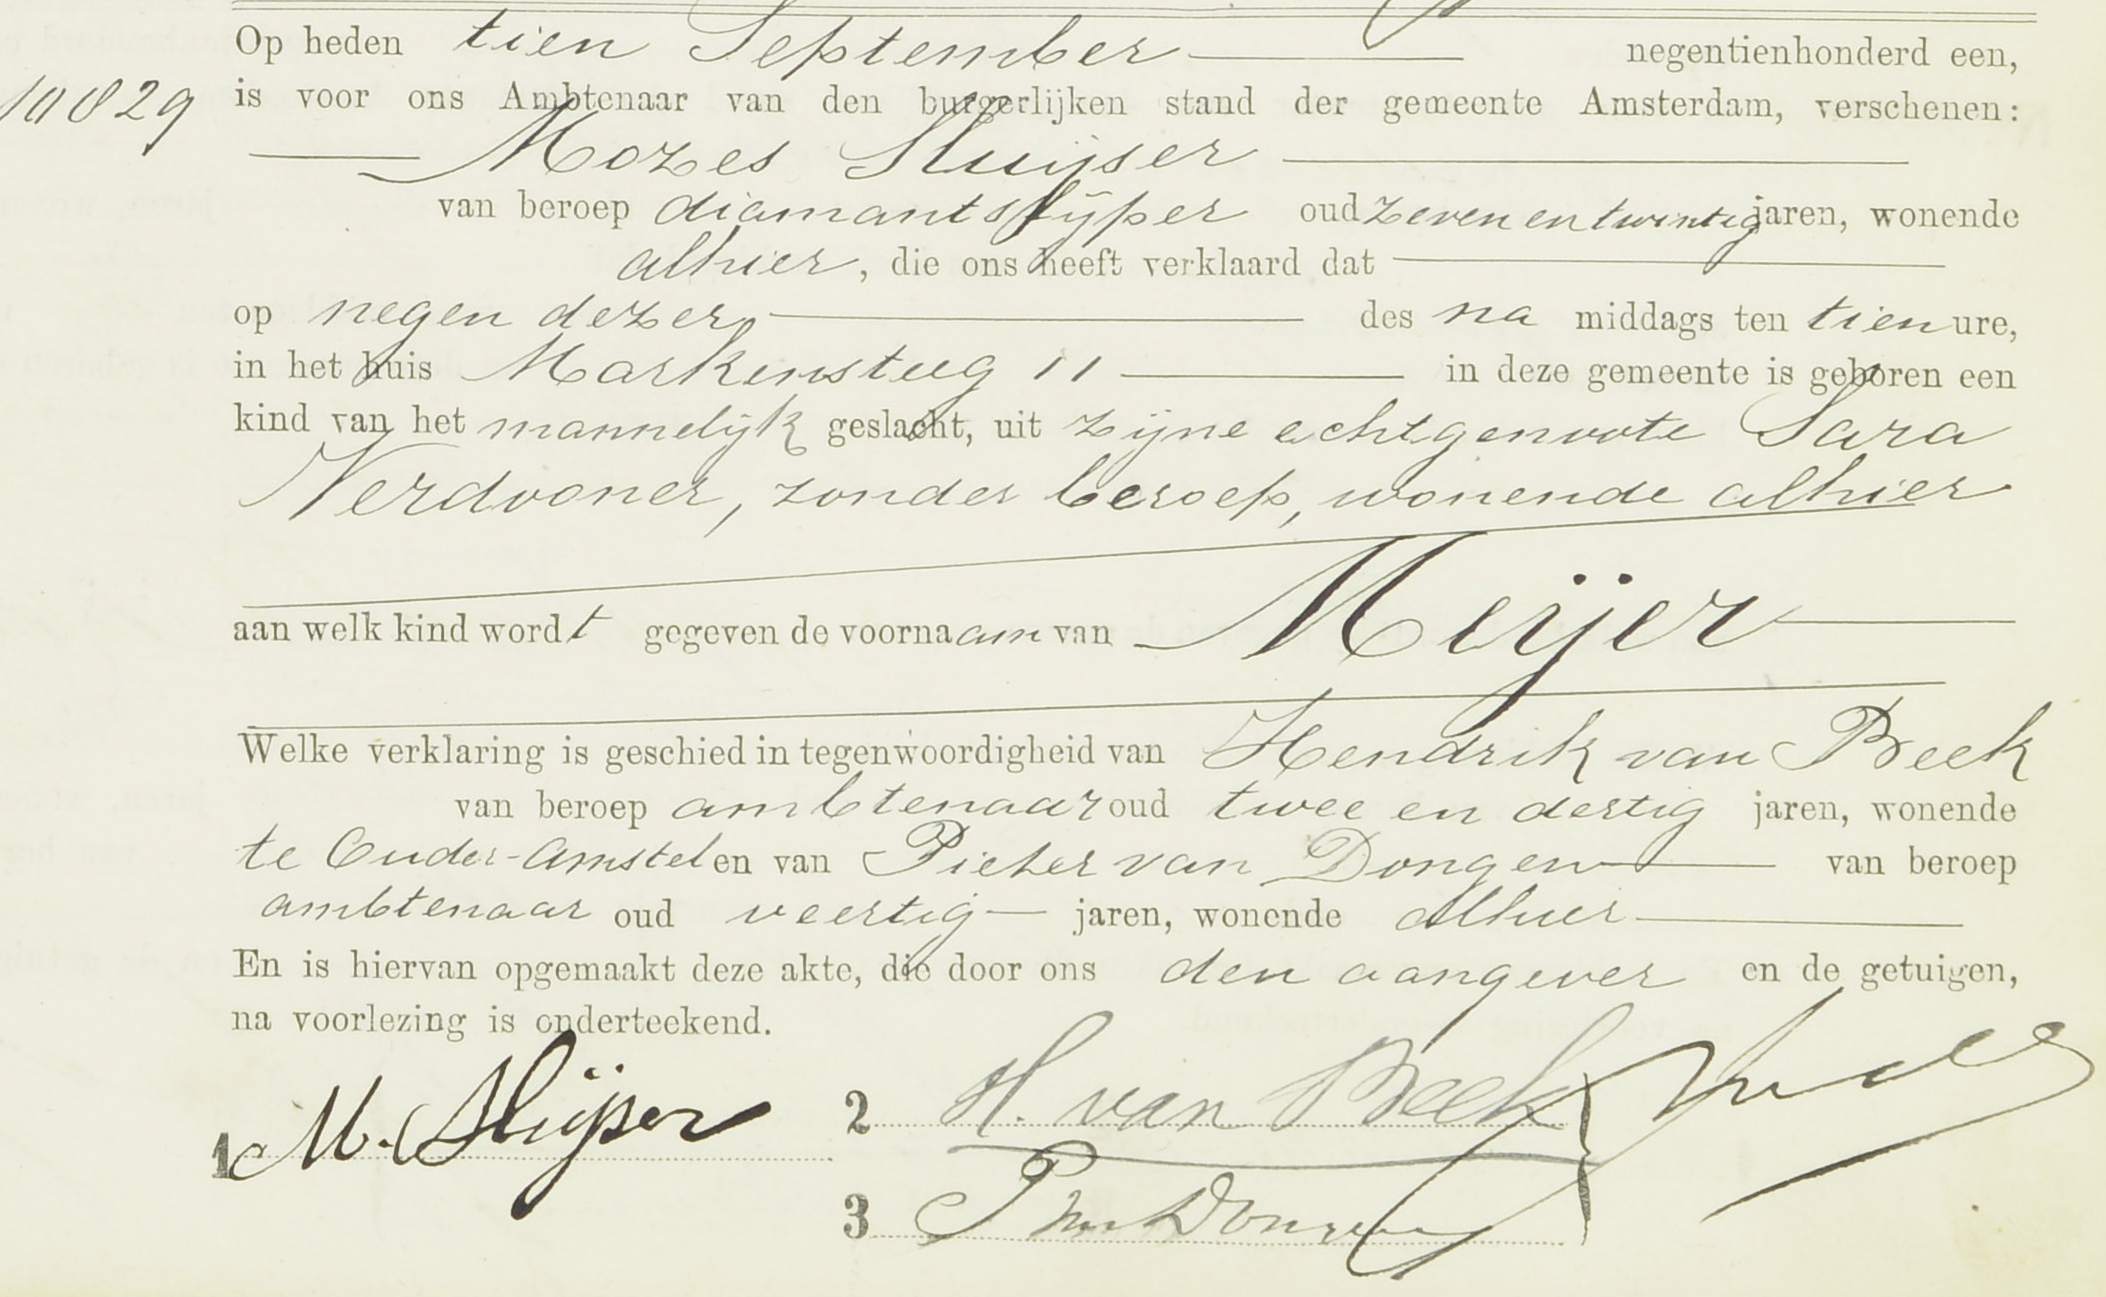 Op heden tien September negentienhonderd een,
10829 is voor ons Ambtenaar van den burgerlijken stand der gemeente Amsterdam, verschenen:
Mozes Sluijser
van beroep diamantslijper oud zeven en twintig jaren, wonende
alhier, die ons heeft verklaard dat
op negen dezer, des na middags ten tien ure,
in het huis Markensteeg 11 in deze gemeente is geboren een
kind van het mannelijk geslacht, uit zijne echtgenoote Sara
Verdooner, zonder beroep, wonende alhier
aan welk kind wordt gegeven de voornaam van Meijer
Welke verklaring is geschied in tegenwoordigheid van Hendrik van Beek
van beroep ambtenaar oud twee en dertig jaren, wonende
te Ouder-Amstel en van Pieter van Dongen van beroep
ambtenaar oud veertig jaren, wonende alhier
En is hiervan opgemaakt deze akte, die door ons den aangever en de getuigen,
na voorlezing is onderteekend.
1 M. Sluijser
2 H. van Beek
3 P van Dongen